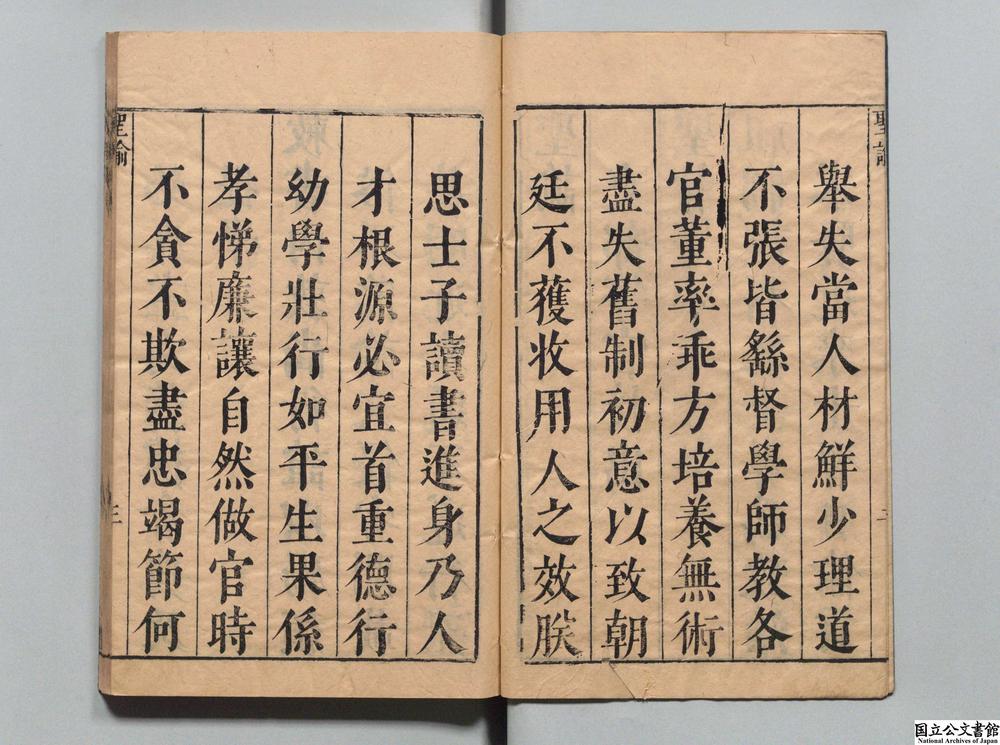 聖諭
舉失當人材鮮少理道
不張皆繇督學師教各
官董率乖方培養無術
盡失舊制初意以致朝
廷不獲收用人之效朕
二
思士子讀書進身乃人
才根源必宜首重德行
幼學壯行如平生果係
孝悌廉讓自然做官時
不貪不欺盡忠竭節何
聖諭
三
国立公文書館
National Archives of Japan